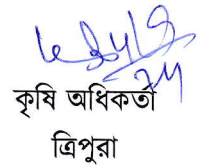 কৃষি অধিকর্তা
ত্রিপুরা